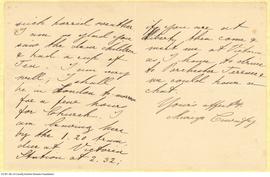 such horrid weather
I am so glad you
saw the dear children
& had a cup of
Tea. I am very
well; I shall
be in London to morrow
for a few hours
for Church. I
am leaving here
by the 1.20 train
due at Victoria
Station at 2.32;
if you are at
liberty then come &
meet me at Victoria
as I have to drive
to Porchester Terrace &
we could have a
chat.
Yours affectly